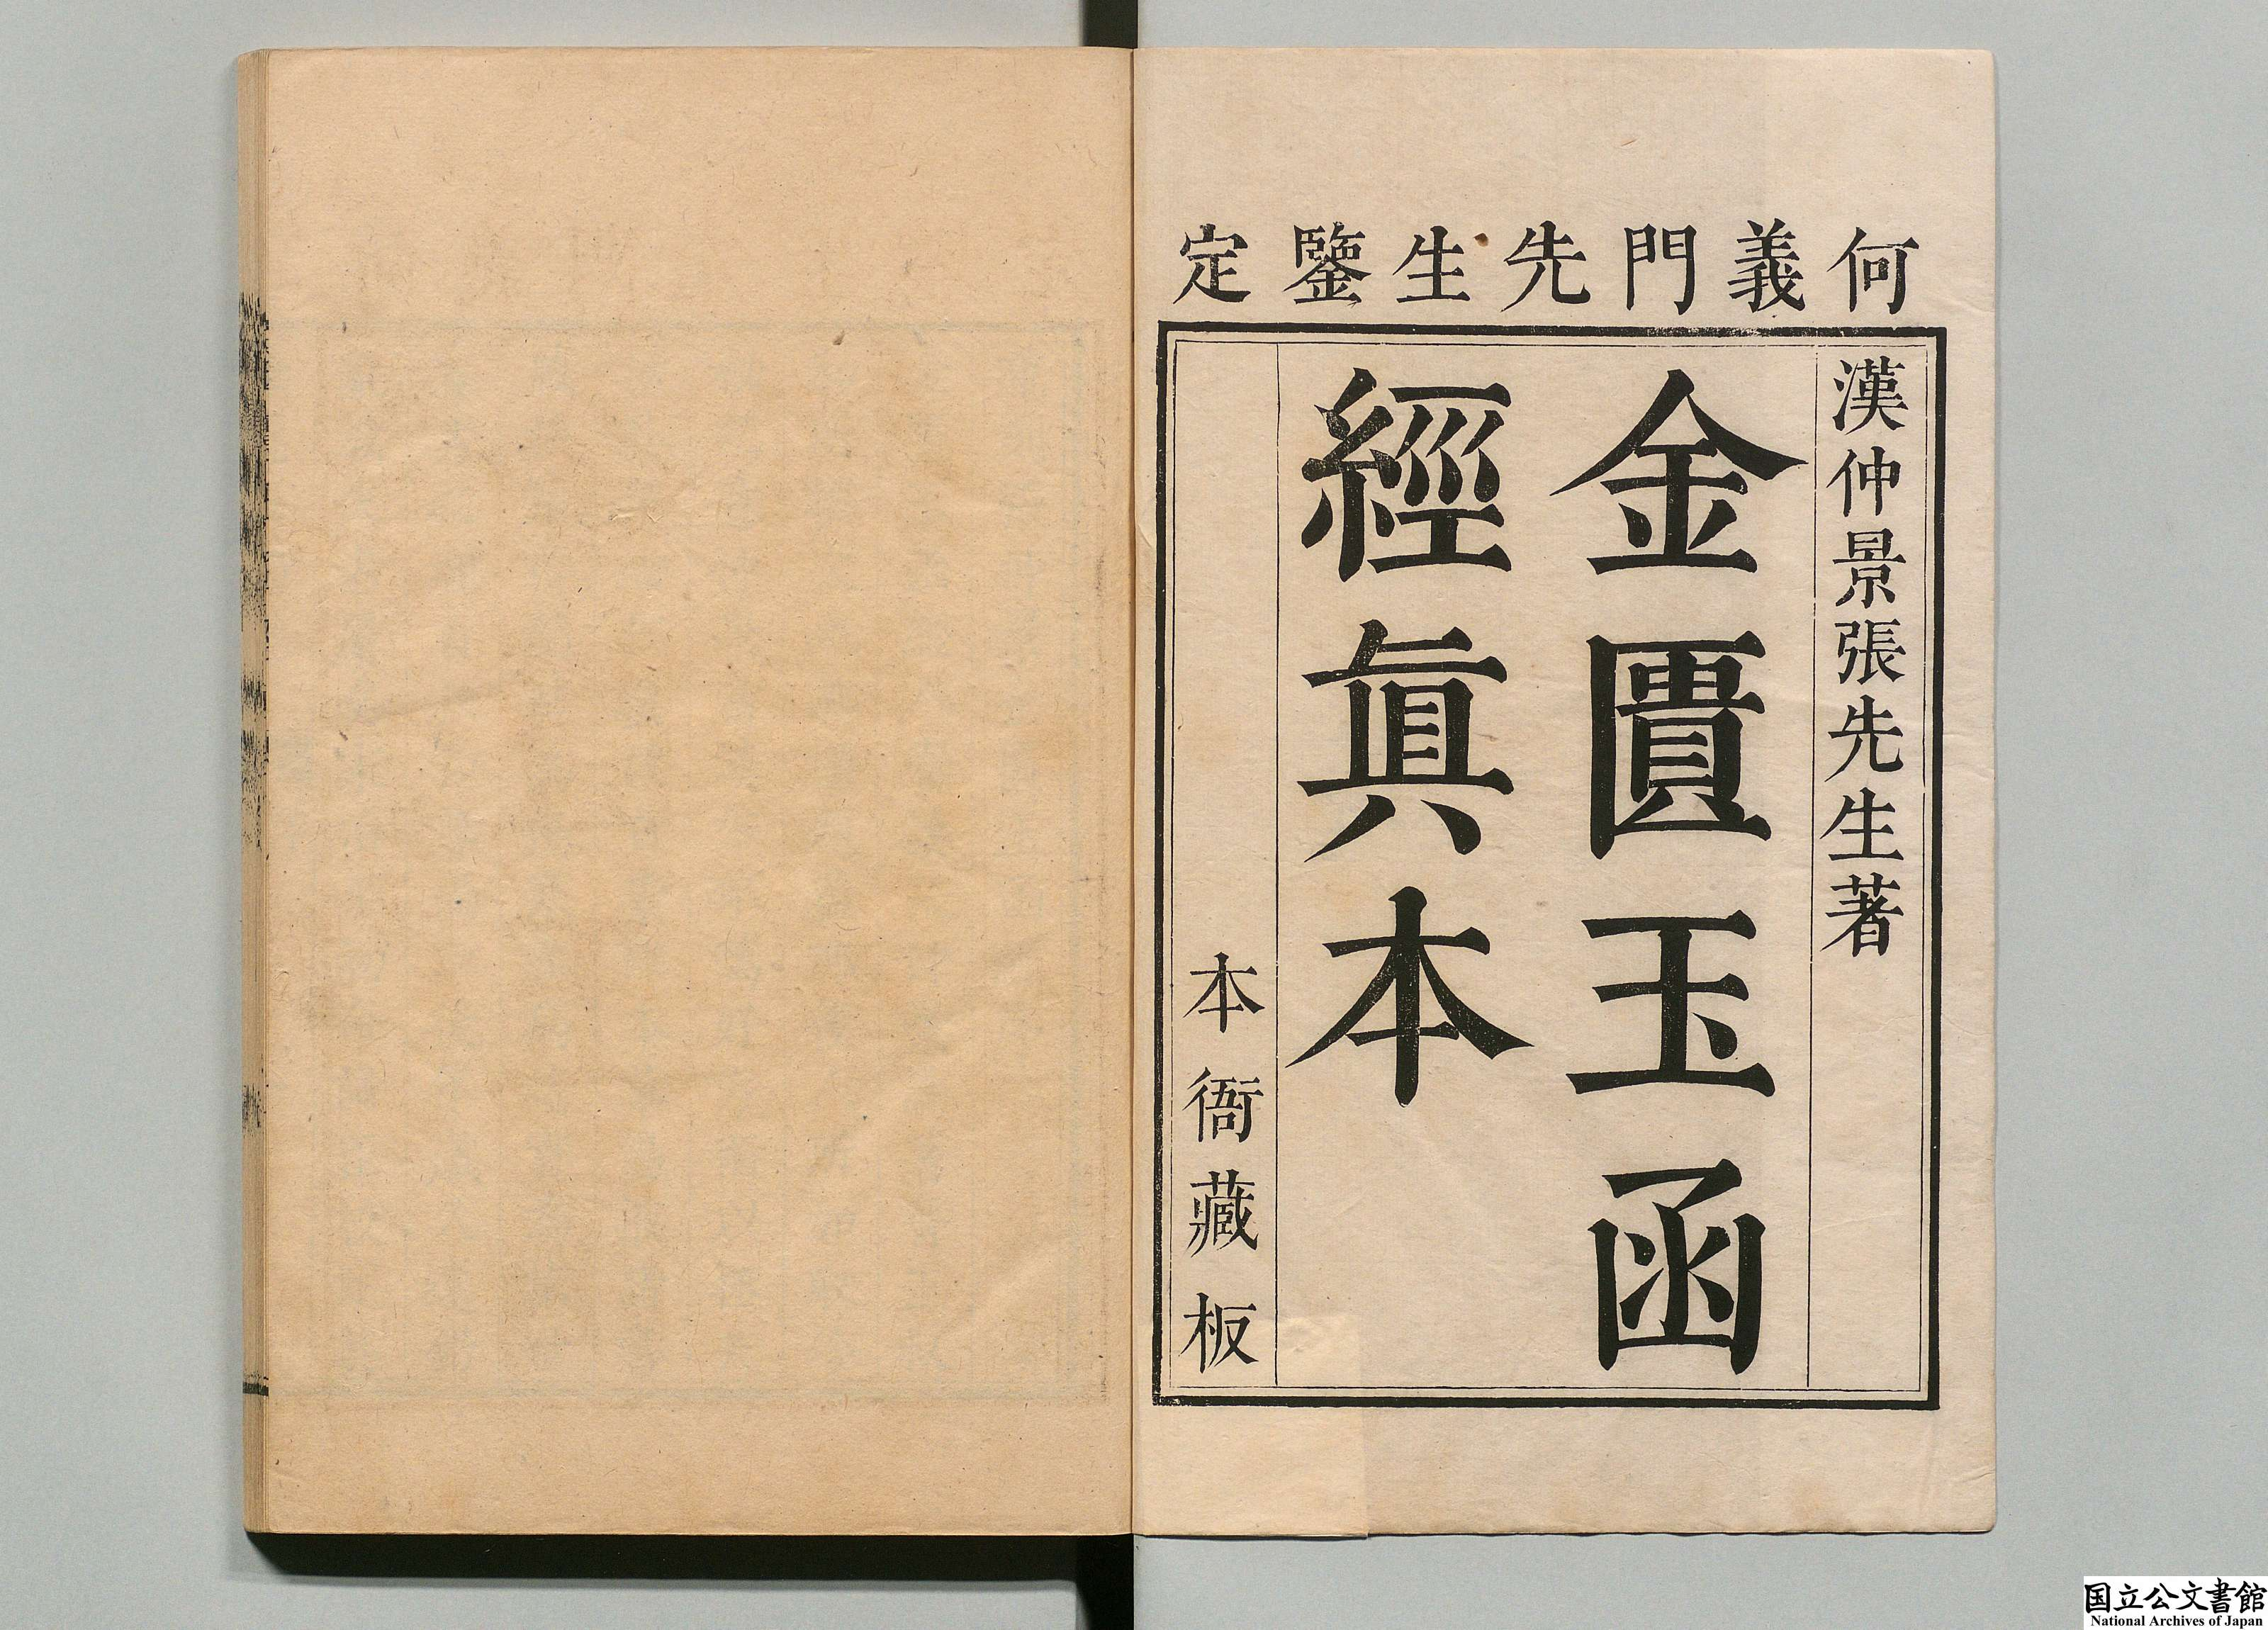 何義門先生鑒定
漢仲景張先生著
金匱玉函
經眞本
本衙藏板
国立公文書館
National Archives of Japan